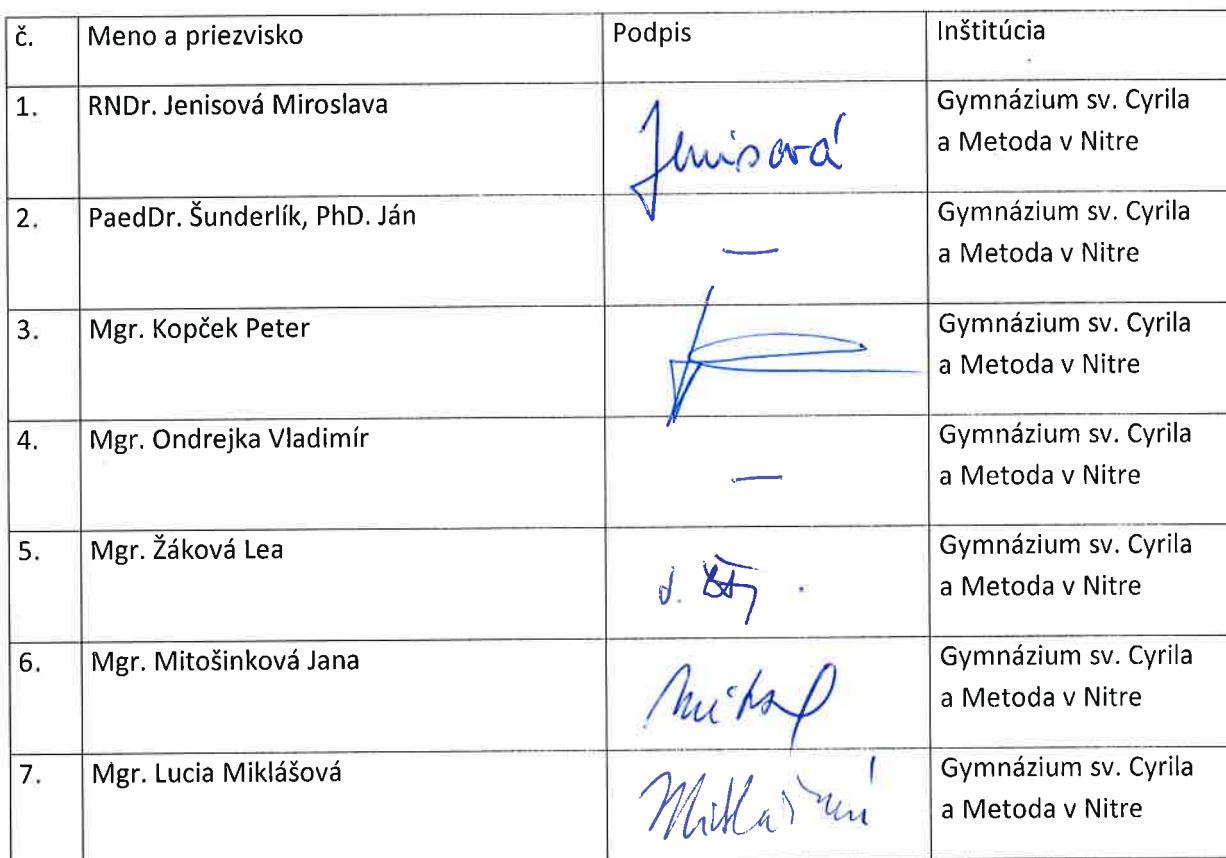 č. Meno a priezvisko Podpis Inštitúcia
1. RNDr. Jenisová Miroslava Jenisová Gymnázium sv. Cyrila
a Metoda v Nitre
2. PaedDr. Šunderlík, PhD. Ján — Gymnázium sv. Cyrila
a Metoda v Nitre
3. Mgr. Kopček Peter Gymnázium sv. Cyrila
a Metoda v Nitre
4. Mgr. Ondrejka Vladimír — Gymnázium sv. Cyrila
a Metoda v Nitre
5. Mgr. Žáková Lea Gymnázium sv. Cyrila
a Metoda v Nitre
6. Mgr. Mitošinková Jana Gymnázium sv. Cyrila
a Metoda v Nitre
7. Mgr. Lucia Miklášová Gymnázium sv. Cyrila
a Metoda v Nitre